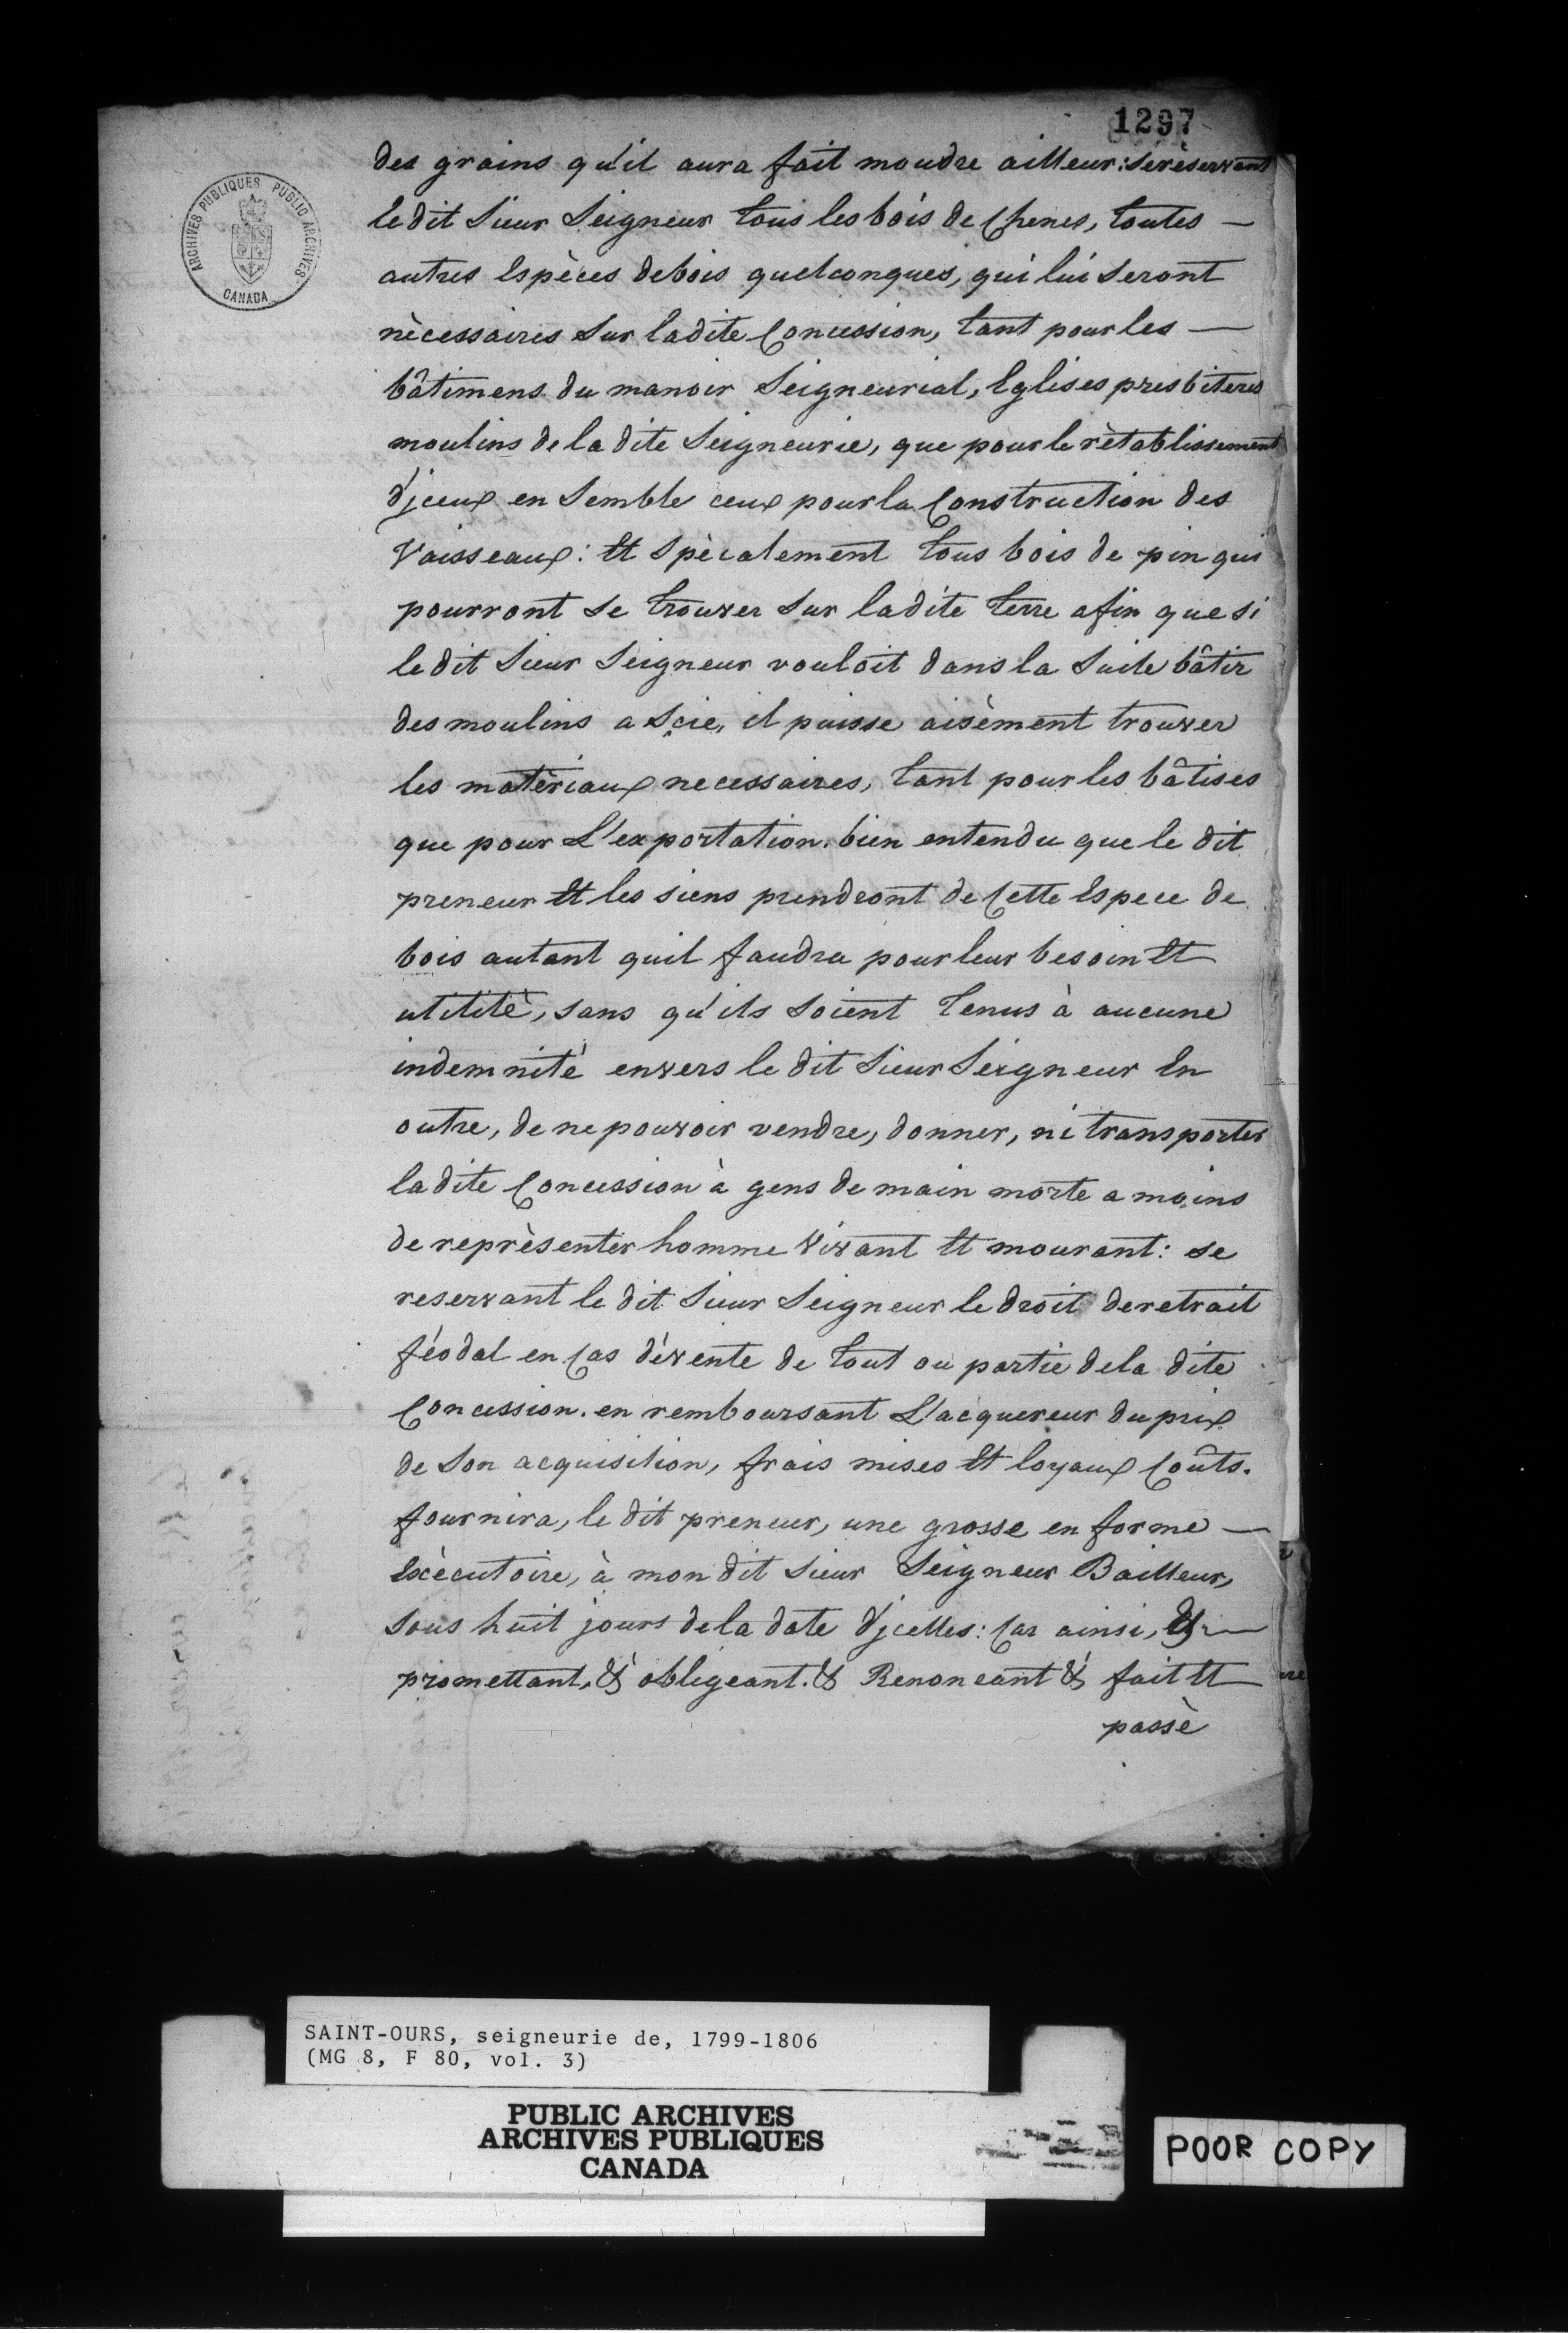 1297
des grains qu'il aura fait moudre ailleur: se rèservant
le dit Sieur Seigneur tous les bois de Chenes, toutes —
autres Espèces de bois quelconques, qui lui seront
nècessaires sur ladite Concession, tant pour les —
bâtimens du manoir Seigneurial, Eglises presbiteres
moulins de la dite Seigneurie, que pour le rètablissement
d'jceux en semble ceux pour la Construction des
Vaisseaux: Et spècalement tous bois de pin qui
pourront se trouver sur ladite terre afin que si
le dit Sieur Seigneur vouloit dans la suite bâtir
des moulins a scie, il puisse aisèment trouver
les matèriaux necessaires, tant pour les bâtises
que pour L'exportation. bien entendu que le dit
preneur Et les siens prendront de Cette Espece de
bois autant quil faudra pour leur besoin Et
utilitè, sans qu'ils soient tenus à aucune
indemnité envers le dit Sieur Seigneur En
outre, de ne pouvoir vendre, donner, ni transporter
ladite Concession à gens de main morte a moins
de reprèsenter homme Vivant Et mourant: se
reservant le dit Sieur Seigneur le droit de retrait
féodal en Cas dévente de tout ou partie de la dite
Concession. en remboursant L'acquereur du prix
de son acquisition, frais mises Et loyaux Coûts.
fournira, le dit preneur, une grosse en forme —
Exècutoire, à mon dit Sieur Seigneur Bailleur,
sous huit jours de la date d'jcelles: Car ainsi, & —
promettant, & obligeant. & Renoncant & fait Et
passè
ARCHIVES PUBLIQUES PUBLIC ARCHIVES
CANADA
SAINT-OURS, seigneurie de, 1799-1806
(MG 8, F 80, vol. 3)
PUBLIC ARCHIVES
ARCHIVES PUBLIQUES
CANADA
POOR COPY